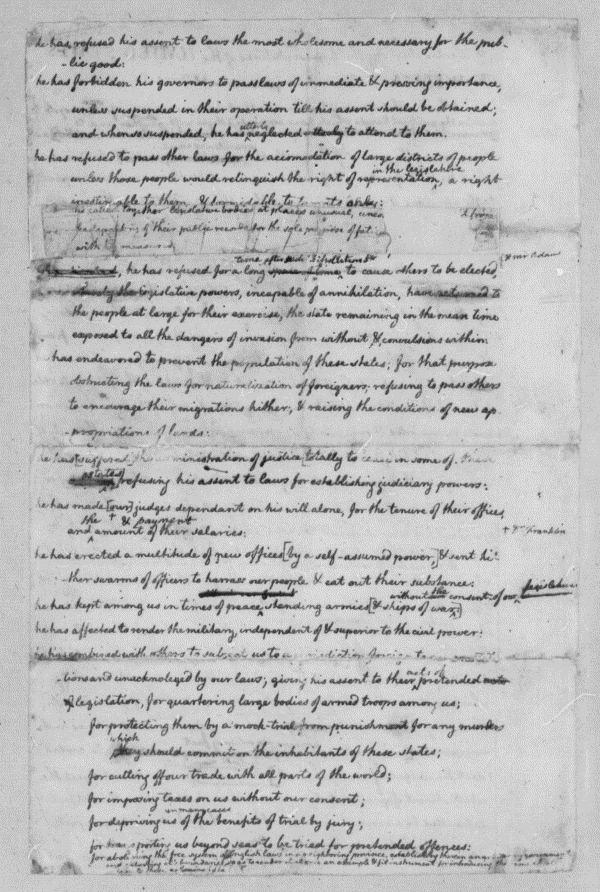 he has refused his assent to laws the most wholesome and necessary for the pub-
-lic good:
he has forbidden his governors to pass laws of immediate & pressing importance,
unless suspended in their operation till his assent should be obtained;
and when suspended, he has utterly neglected utterly to attend to them.
he has refused to pass other laws for the accomodation of large districts of people
unless those people would relinquish the right of representation in the legislature, a right
inestimable to them & formidable to tyrants only:
he has called together legislative bodies at places unusual,
the depository of their public records for the sole purpose of
with his measures;
he has refused for a long time to cause others to be elected,
whereby the legislative powers, incapable of annihilation, have returned to
the people at large for their exercise, the state remaining in the mean time
exposed to all the dangers of invasion from without & convulsions within:
has endeavored to prevent the population of these states; for that purpose
obstructing the laws for naturalization of foreigners; refusing to pass others
to encourage their migrations hither; & raising the conditions of new ap-
-propriations of lands:
he has [suffered] the administration of justice [totally to cease in some of these
states] refusing his assent to laws for establishing judiciary powers:
he has made [our] judges dependant on his will alone, for the tenure of their offices,
and the + & payment amount of their salaries:
+ Dr Franklin
he has erected a multitude of new offices [by a self-assumed power,] & sent hi-
-ther swarms of officers to harrass our people & eat out their substance:
he has kept among us in times of peace, standing armies [& ships of war] without the consent of our legislatures
he has affected to render the military, independent of & superior to the civil power:
he has combined with others to subject us to a jurisdiction foreign to
-tions and unacknoleged by our laws; giving his assent to their acts of pretended acts
of legislation, for quartering large bodies of armed troops among us;
for protecting them by a mock-trial from punishment for any murders
which they should commit on the inhabitants of these states;
for cutting off our trade with all parts of the world;
for imposing taxes on us without our consent;
for depriving us in many cases of the benefits of trial by jury;
for transporting us beyond seas to be tried for pretended offences:
for abolishing the free system of English laws in a neighboring province, establishing therein an